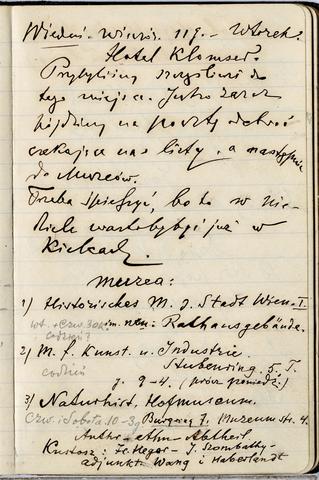 Wiedeń - wieczór. 11 g. - Wtorek.
Hotel Klomser.
Przybyliśmy szczęśliwie do
tego miejsca. Jutro zaraz
pójdziemy na pocztę odebrać
czekające nas listy, a następnie
do Muzeów.
Trzeba śpieszyć, bo to w Nie-
dzielę warto by być już w
Kielcach.
muzea:
1) Historisches M. d. Stadt Wien - I.
wt. + czw. im neuen Rathausgebäude.
codzień?
2) M. f. Kunst u. Industrie.
codzień Stubenring 5. I.
g. 9-4. (prócz poniedz.)
3) Naturhist. Hofmuseum.
czw. i Sobota 10-3 g Burgring 7. Museumstr. 4.
Anthr.-ethn. Abtheil.
Kustosz: Fr. Heger - J. Szombathy -
adjunkt: Wang i Haberlandt